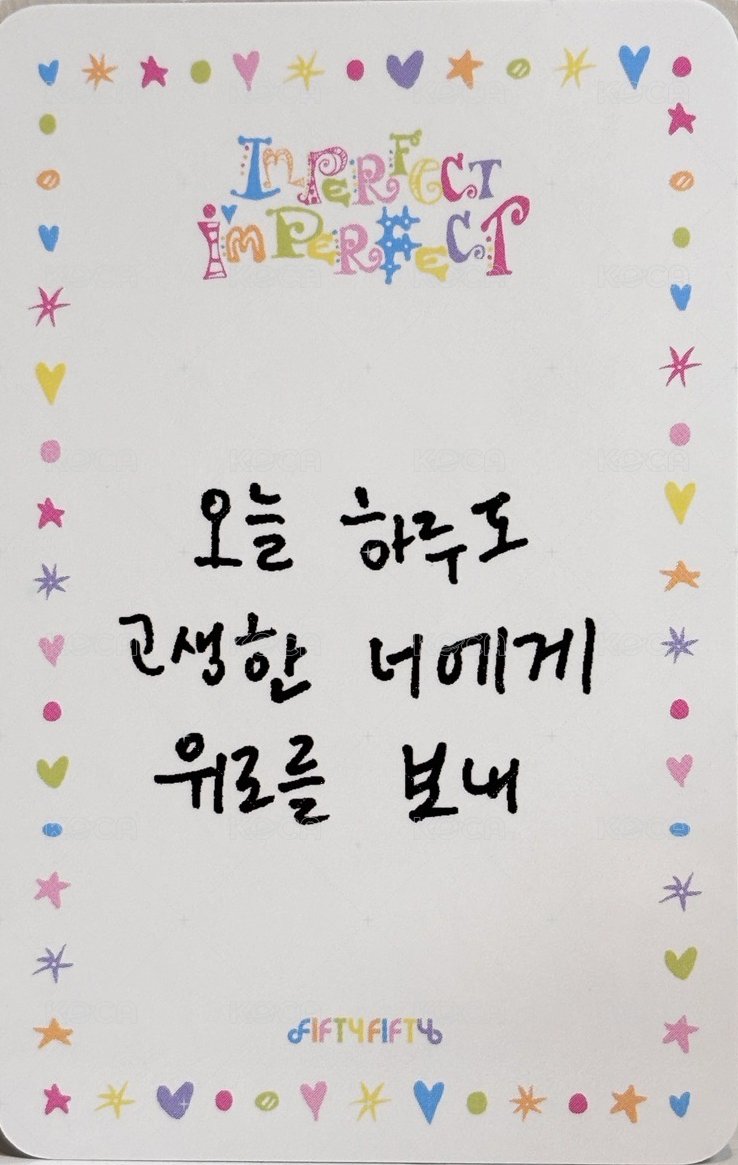 ImPeRFECT
I'm PeRFeCT
오늘 하루도
고생한 너에게
위로를 보내
FIFTYFIFTY